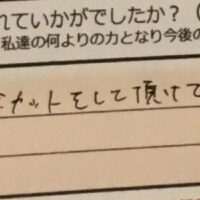 れていかがでしたか？（
私達の何よりの力となり今後の
カットをして頂けて